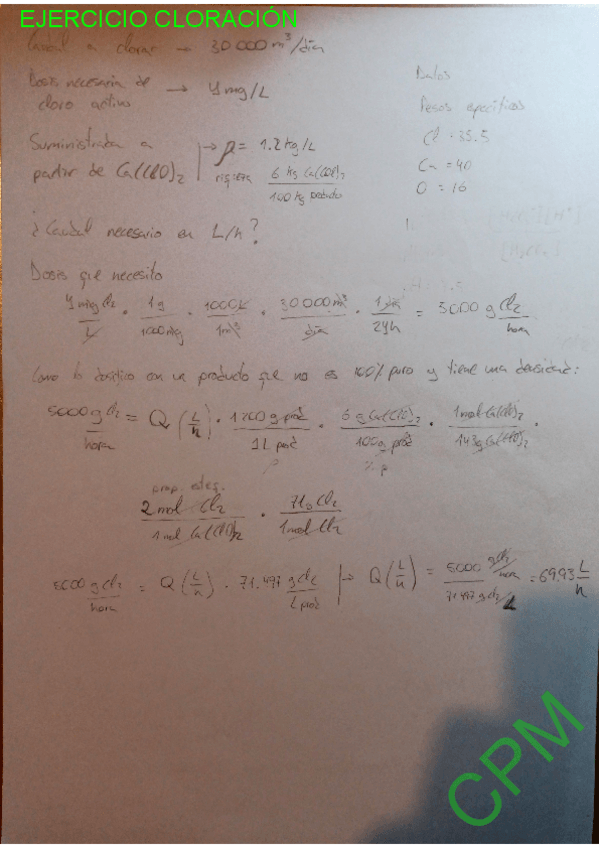 EJERCICIO CLORACIÓN
Caudal a clorar → 30000 m³/día
Dosis necesaria de cloro activo → 4 mg/L
Datos
Pesos específicos
Cl = 35.5
Ca = 40
O = 16
Suministrada a partir de Ca(ClO)₂
→ ρ = 1.2 kg/L
riqueza 6 kg Ca(ClO)₂ / 100 kg producto
¿Caudal necesario en L/h?
Dosis que necesito
4 mg Cl₂ / L · 1g / 1000mg · 1000L / 1m³ · 30000m³ / día · 1día / 24h = 5000 g Cl₂ / hora
Como lo dosifico con un producto que no es 100% puro y tiene una densidad:
5000 g Cl₂ / hora = Q (L/h) · 1200 g prod / 1L prod · 6 g Ca(ClO)₂ / 100g prod · 1mol Ca(ClO)₂ / 143g Ca(ClO)₂ ·
prop. esteq.
2 mol Cl₂ / 1 mol Ca(ClO)₂ · 71g Cl₂ / 1mol Cl₂
5000 g Cl₂ / hora = Q (L/h) · 71.497 g Cl₂ / L prod → Q (L/h) = 5000 g Cl₂/hora / 71.497 g Cl₂/L = 69,93 L/h
CPM